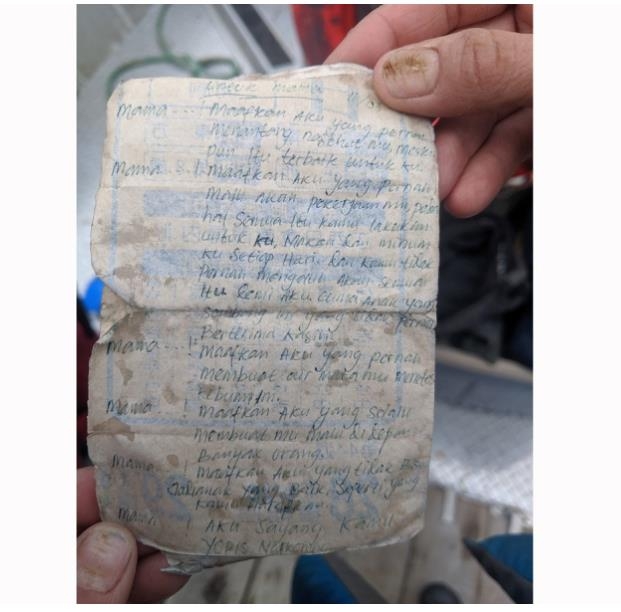 untuk mama
Mama...! Maafkan Aku yang pernah
Menantang nasehat mu, meski
pun Itu terbaik untuk ku.
Mama...! Maafkan Aku yang pernah
Malu akan pekerjaan mu, pada
hal Semua Itu kamu lakukan
untuk ku, Makan dan minum
ku Setiap Hari. dan kamu tidak
Pernah mengeluh Akan Semua
Itu Demi Aku Cuma Anak yang
Sombong ini yang tidak pernah
Berterima Kasih.
Mama...! Maafkan Aku yang pernah
membuat air mata mu menetes
kebumi ini.
Mama...! Maafkan Aku yang Selalu
Membuat mu Malu di depan
Banyak orang.
Mama...! Maafkan Aku yang tidak
anak yang Baik, Seperti yang
Kamu
Mama...! Aku Sayang Kamu